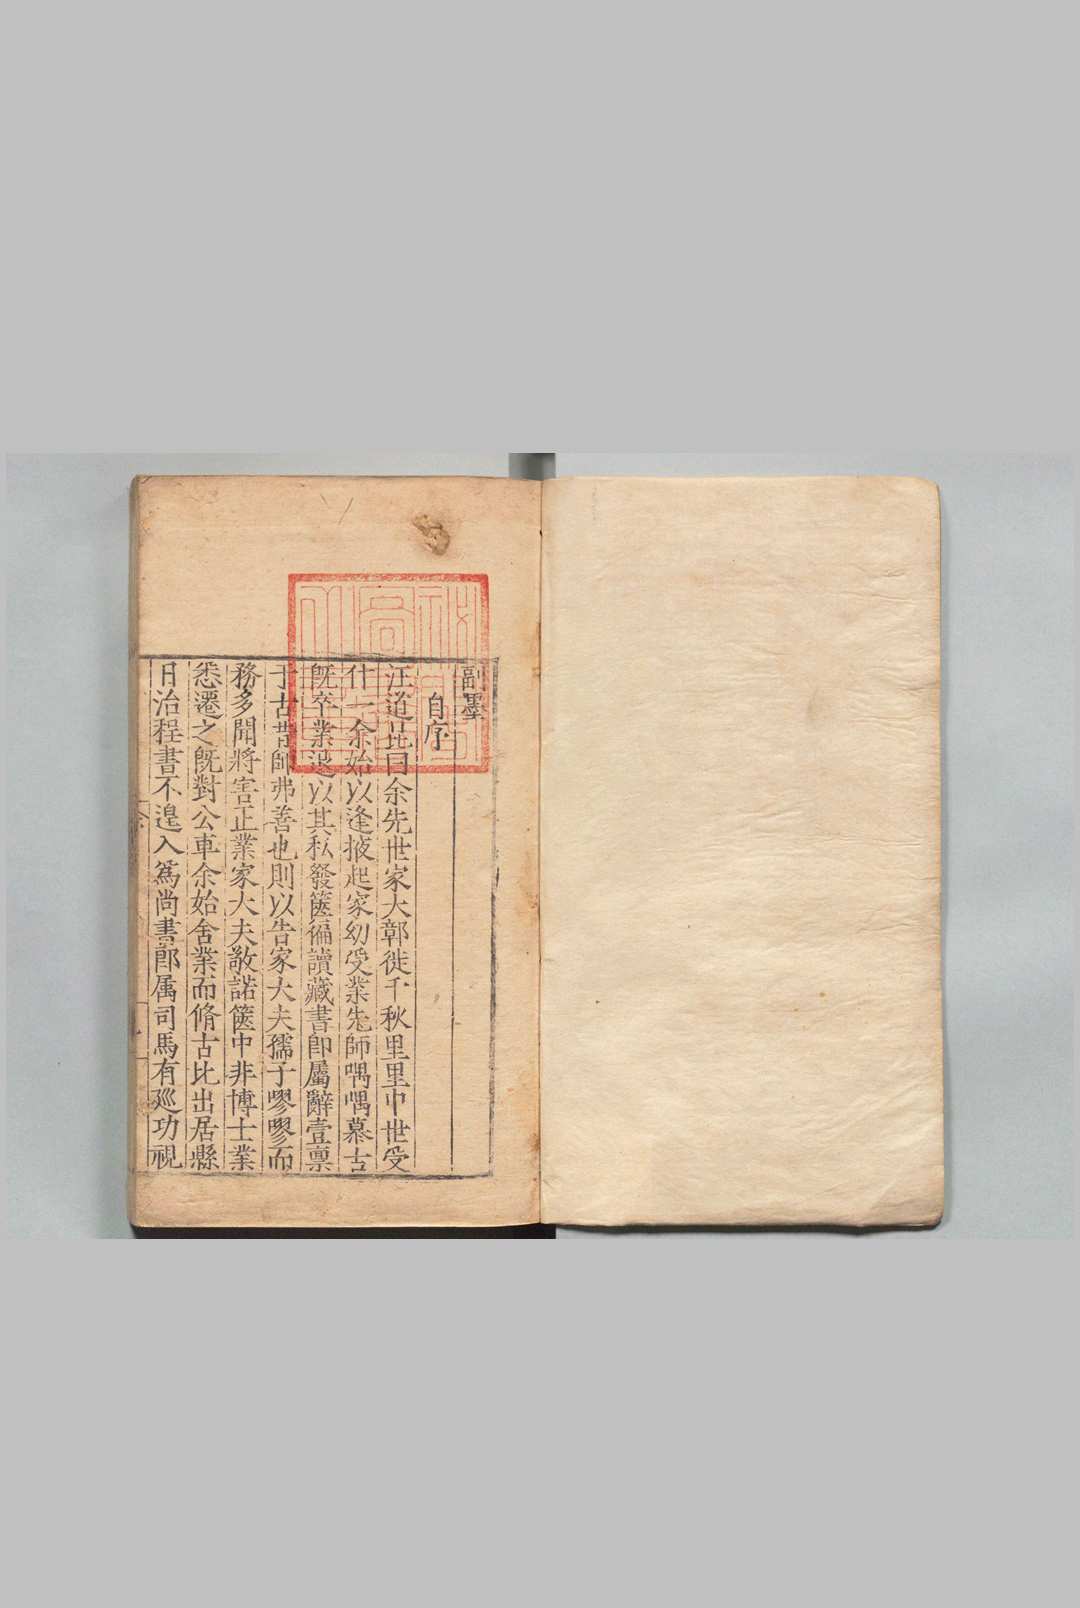 副墨
自序
汪道昆曰余先世家大鄣徙千秋里里中世受
什一余始以逢掖起家幼受業先師喁喁慕古
既卒業退以其私發篋徧讀藏書即屬辭壹稟
于古昔師弗善也則以告家大夫孺子嘐嘐而
務多聞將害正業家大夫敬諾篋中非博士業
悉遷之既對公車余始舍業而脩古比出居縣
日治程書不遑入爲尚書郎属司馬有廵功視